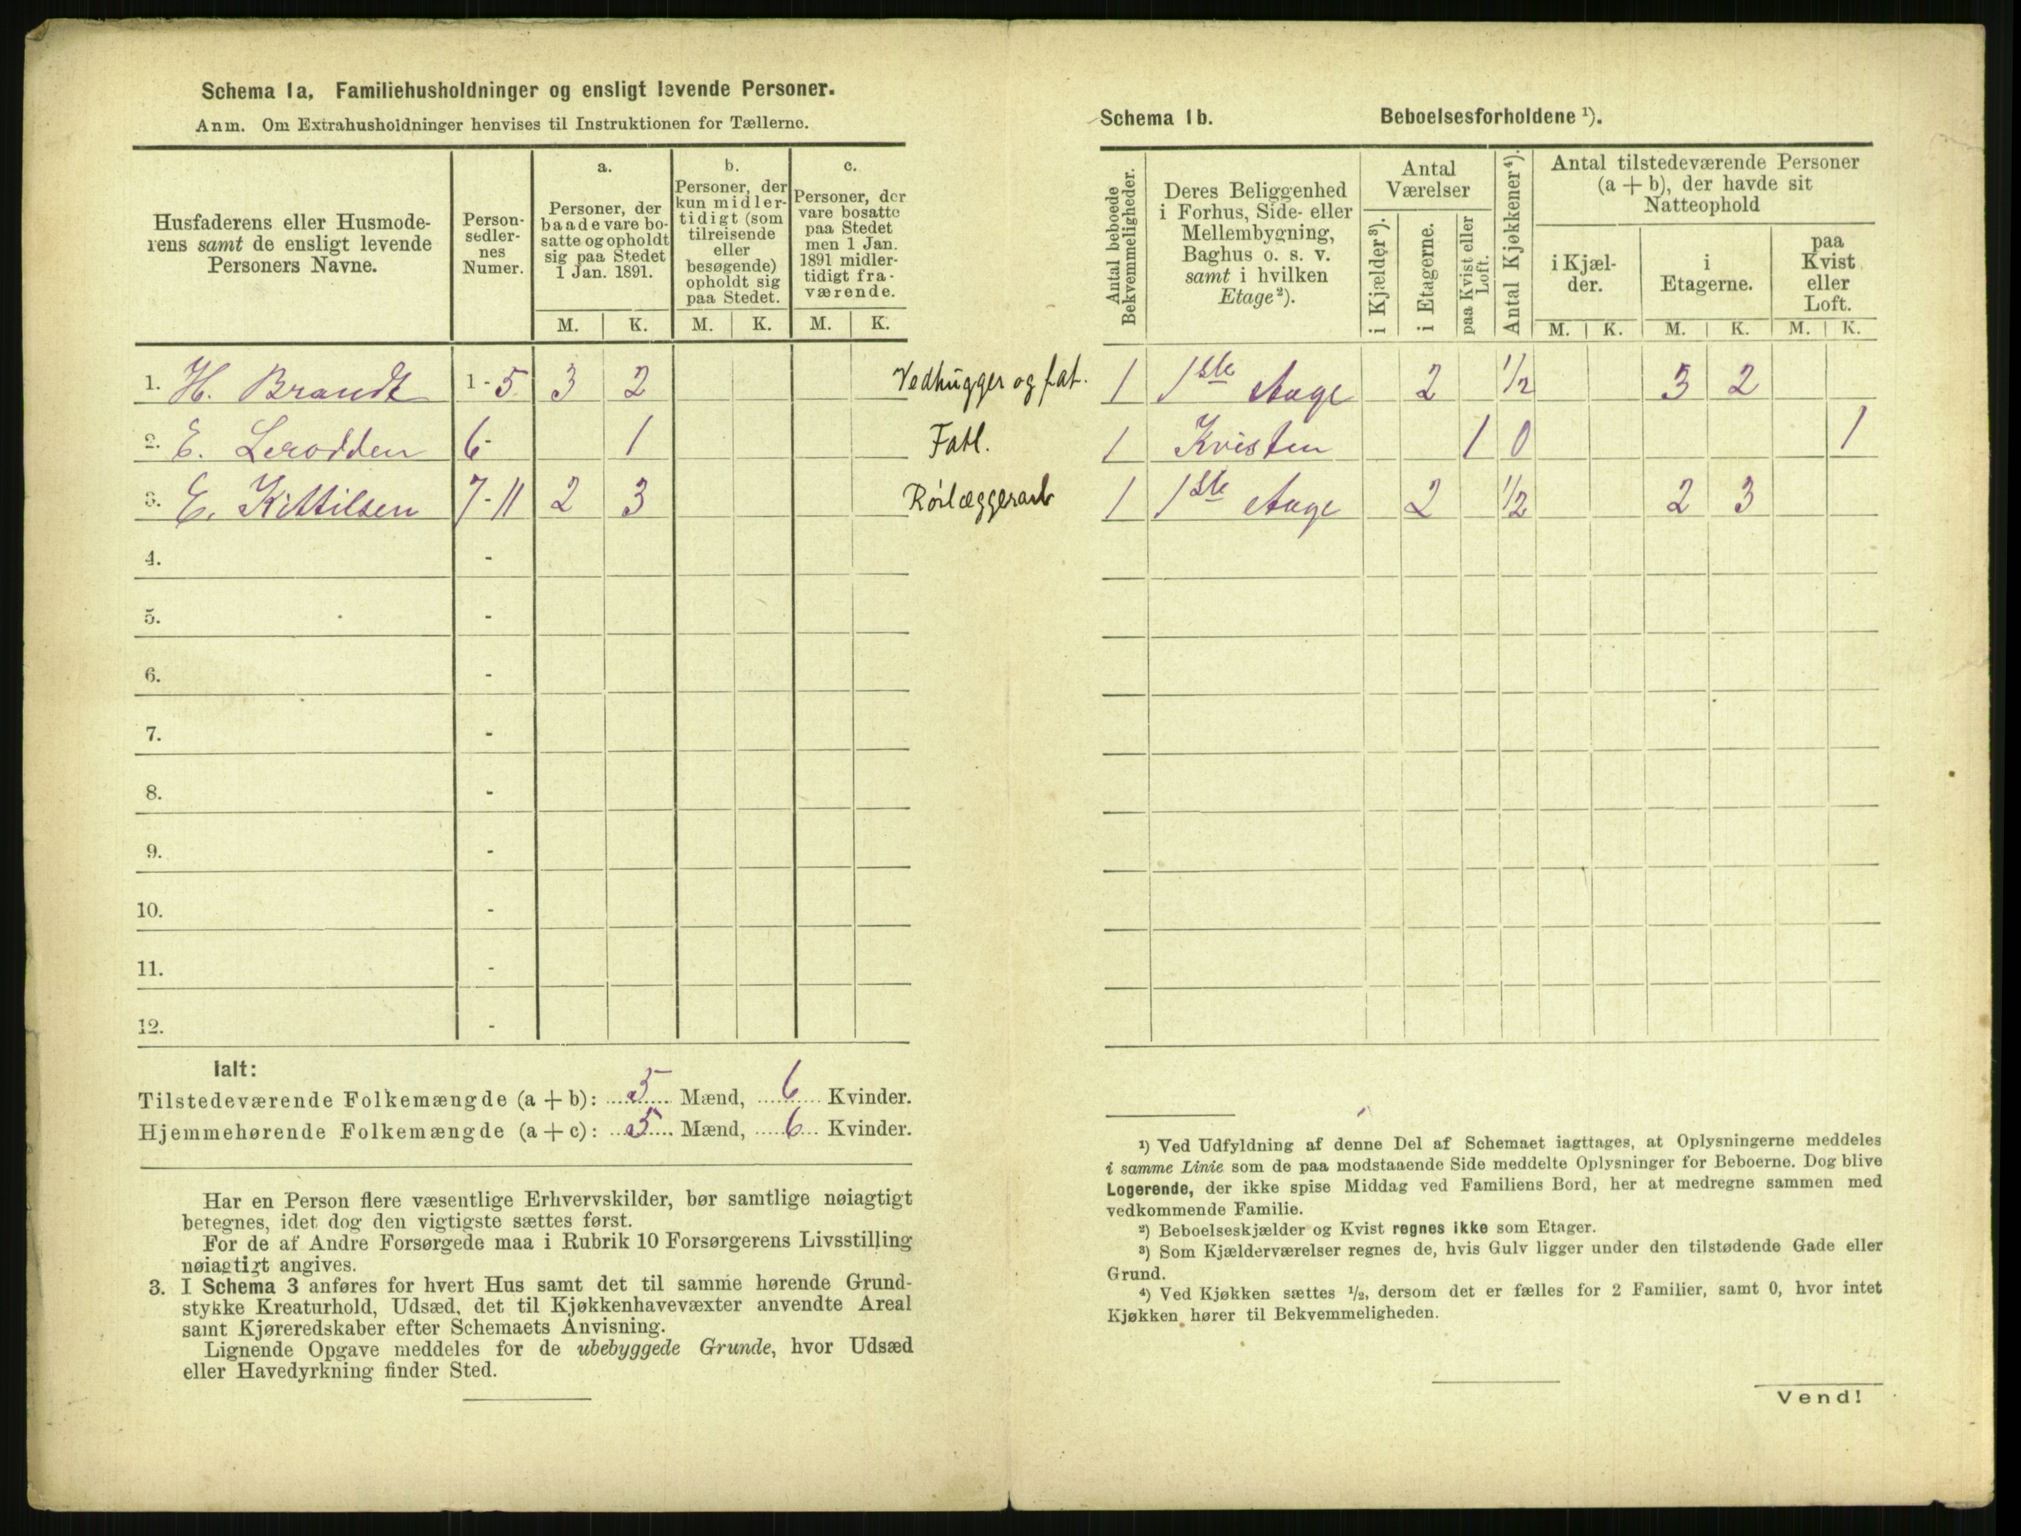 Schema 1a, Familiehusholdninger og ensligt levende Personer.
Anm. Om Extrahusholdninger henvises til Instruktionen for Tællerne.
Husfaderens eller Husmode-
rens samt de ensligt levende
Personers Navne.
Person-
sedler-
nes
Numer.
a.
Personer, der
baade vare bo-
satte og opholdt
sig paa Stedet
1 Jan. 1891.
b.
Personer, der
kun midler-
tidigt (som
tilreisende
eller
besøgende)
opholdt sig
paa Stedet.
c.
Personer, der
vare bosatte
paa Stedet
men 1 Jan.
1891 midler-
tidigt fra-
værende.
M. K. M. K. M. K.
1. H. Brandt 1-5 3 2 Vedhugger og fat.
2. E. Lerodden 6- 1 Fatl.
3. E. Kittilsen 7-11 2 3 Rörlæggerarb
4. -
5. -
6. -
7. -
8. -
9. -
10. -
11. -
12. -
Ialt:
Tilstedeværende Folkemængde (a + b): 5 Mænd, 6 Kvinder.
Hjemmehørende Folkemængde (a + c): 5 Mænd, 6 Kvinder.
Har en Person flere væsentlige Erhvervskilder, bør samtlige nøiagtigt
betegnes, idet dog den vigtigste sættes først.
For de af Andre Forsørgede maa i Rubrik 10 Forsørgerens Livsstilling
nøiagtigt angives.
3. I Schema 3 anføres for hvert Hus samt det til samme hørende Grund-
stykke Kreaturhold, Udsæd, det til Kjøkkenhavevæxter anvendte Areal
samt Kjøreredskaber efter Schemaets Anvisning.
Lignende Opgave meddeles for de ubebyggede Grunde, hvor Udsæd
eller Havedyrkning finder Sted.
Schema 1b. Beboelsesforholdene ¹).
Antal beboede
Bekvemmeligheder.
Deres Beliggenhed
i Forhus, Side- eller
Mellembygning,
Baghus o. s. v.
samt i hvilken
Etage ²).
Antal
Værelser
i Kjælder ³).
i Etagerne.
paa Kvist eller
Loft.
Antal Kjøkkener ⁴).
Antal tilstedeværende Personer
(a + b), der havde sit
Natteophold
i Kjæl-
der.
i
Etagerne.
paa
Kvist
eller
Loft.
M. K. M. K. M. K.
1 1ste Etage 2 1/2 3 2
1 Kvisten 1 0 1
1 1ste Etage 2 1/2 2 3
¹) Ved Udfyldning af denne Del af Schemaet iagttages, at Oplysningerne meddeles
i samme Linie som de paa modstaaende Side meddelte Oplysninger for Beboerne. Dog blive
Logerende, der ikke spise Middag ved Familiens Bord, her at medregne sammen med
vedkommende Familie.
²) Beboelseskjælder og Kvist regnes ikke som Etager.
³) Som Kjælderværelser regnes de, hvis Gulv ligger under den tilstødende Gade eller
Grund.
⁴) Ved Kjøkken sættes ½, dersom det er fælles for 2 Familier, samt 0, hvor intet
Kjøkken hører til Bekvemmeligheden.
Vend!